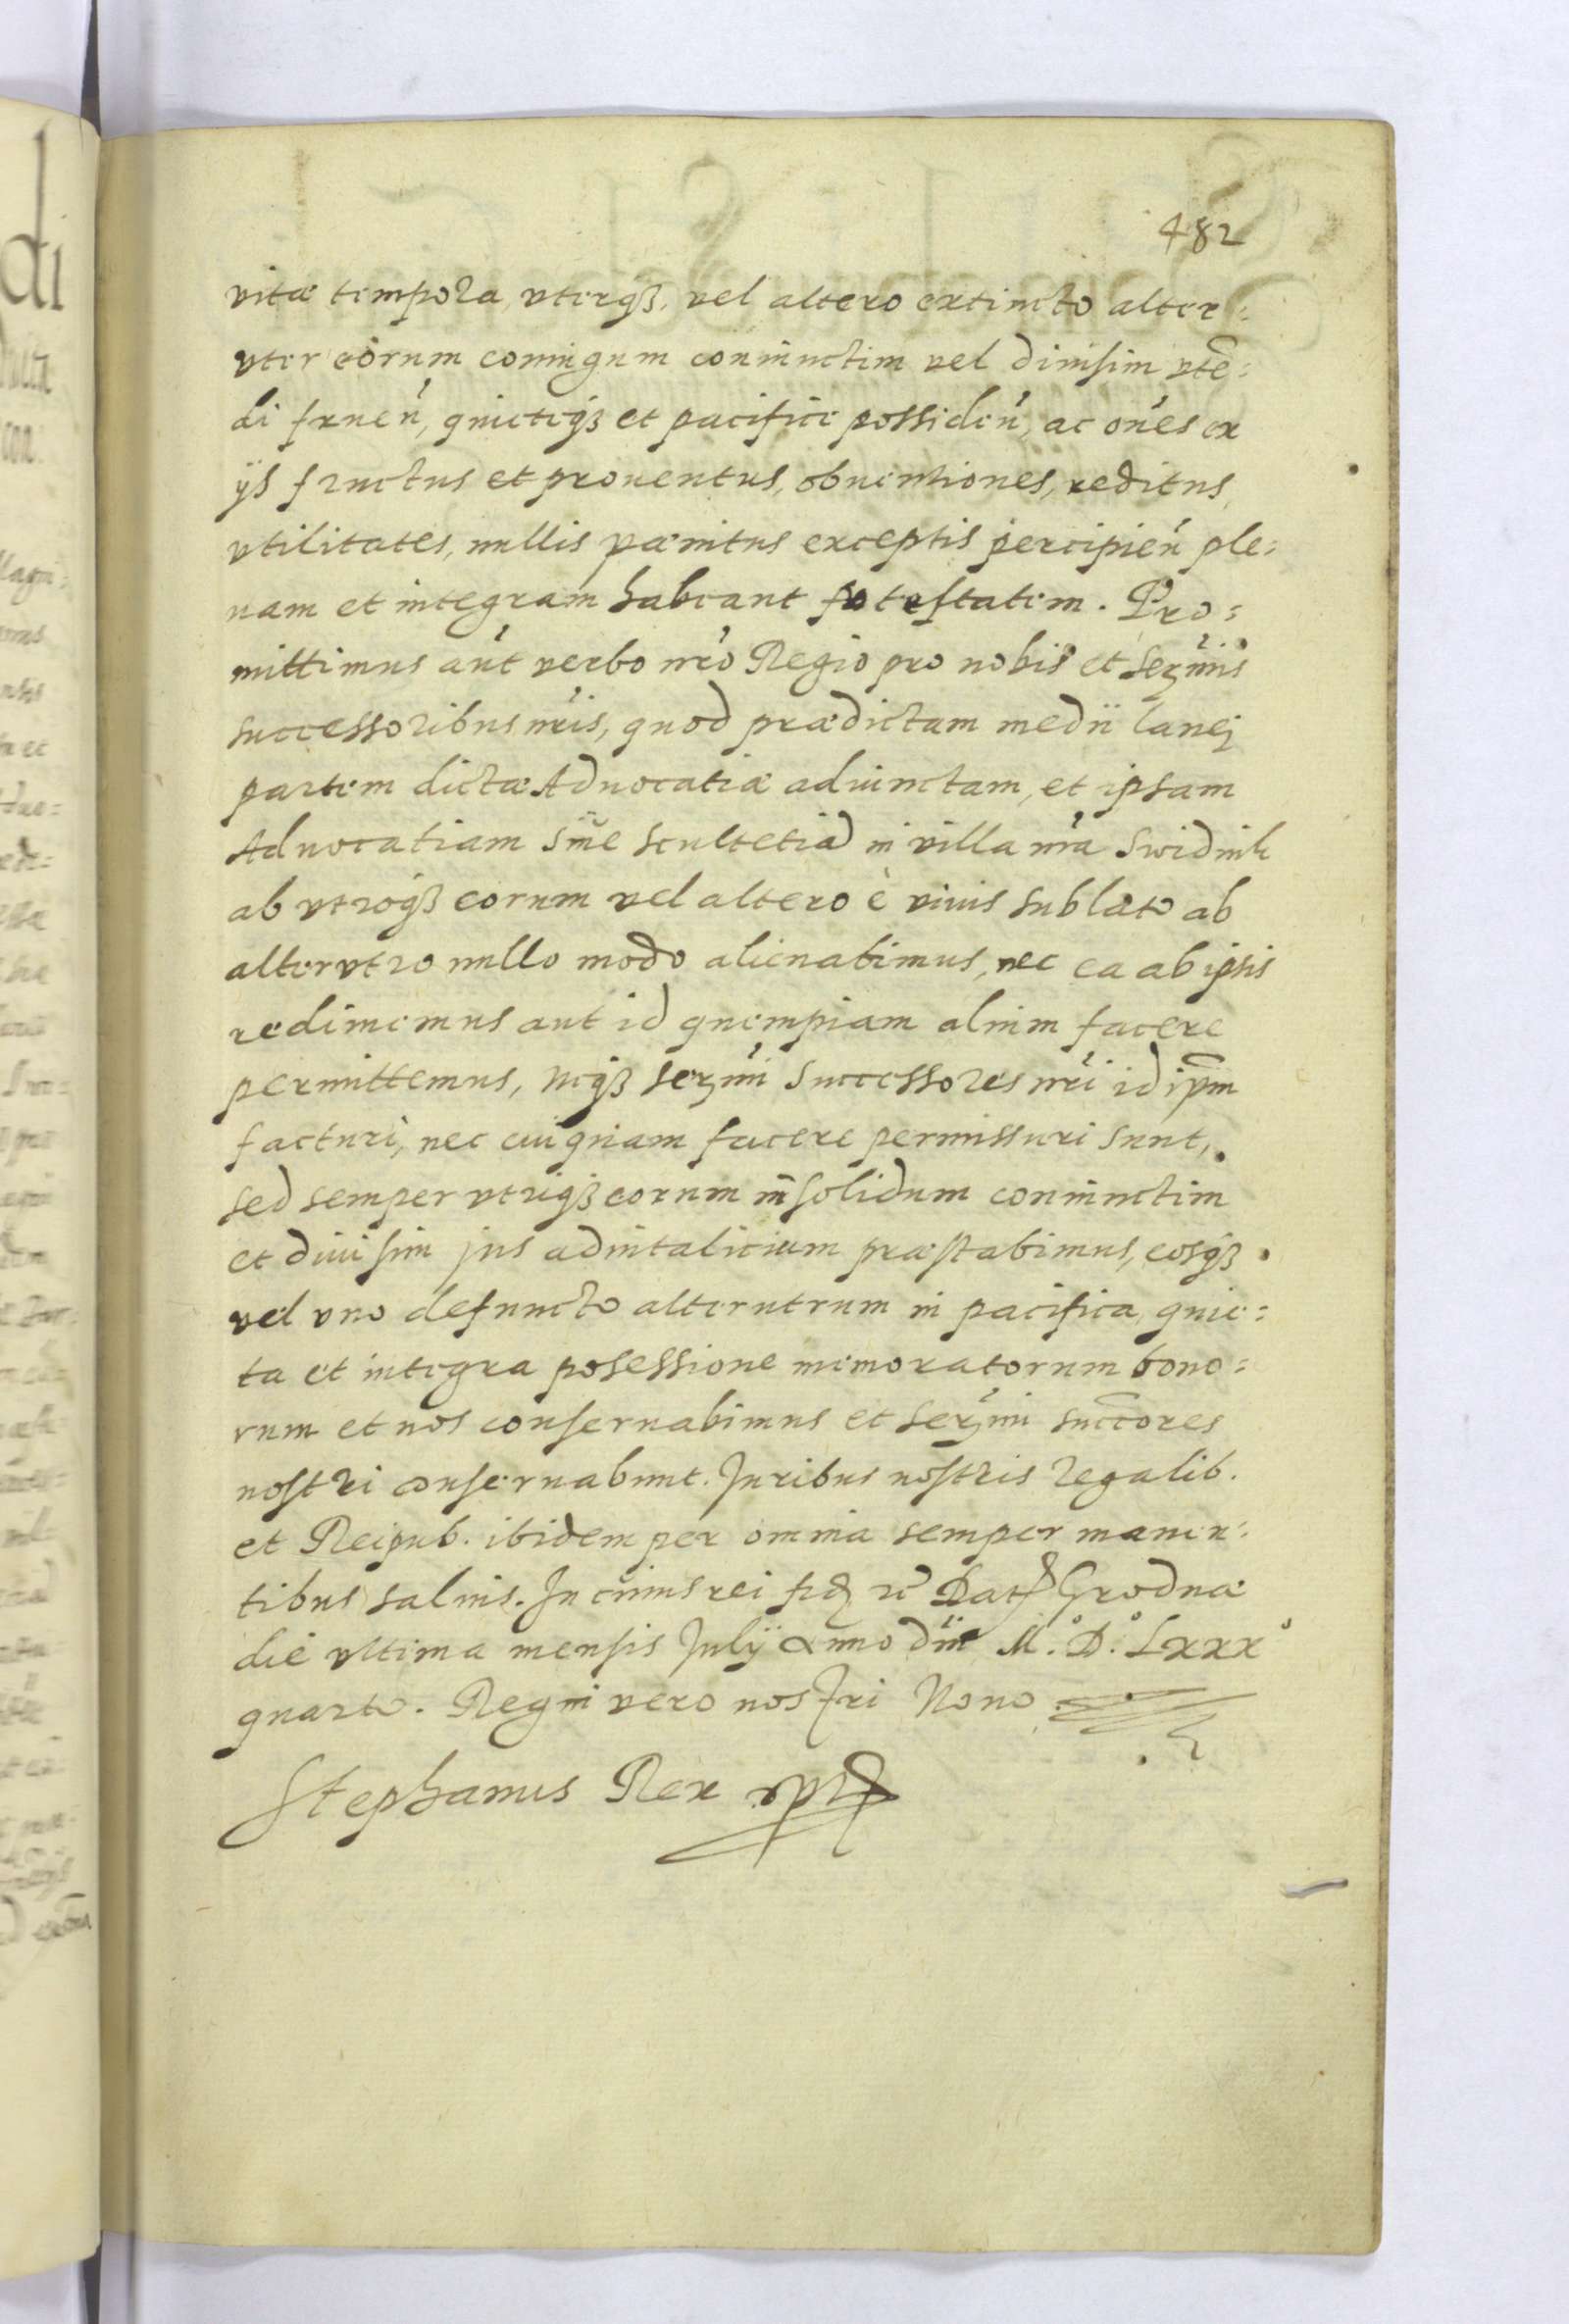 482
vitæ tempora, vterq3, vel altero extincto alter:
vter eorum coniugum coniunctim vel diuisim vtẽ:
di fruen̄, quieteq3 et pacifice possiden̄, ac om̄es ex
ijs fructus et prouentus, obuentiones, reditus,
vtilitates, nullis pœnitus exceptis percipien̄ ple:
nam et integram habeant potestatem. Pro:
mittimus aūt verbo nr̄o Regio pro nobis et Serm̄is
successoribus nr̄is, quod prædictam medii lanej
partem dictæ Aduocatiæ adiunctam, et ipsam
Aduocatiam siue scultetiã in villa nr̄a Swidnik
ab vtroq3 eorum vel altero è viuis sublato ab
alterutro nullo modo alienabimus, nec ea ab ipsis
redimemus aut id quempiam alium facere
permittemus, neq3 serm̄i Successores nr̄i id ip̄m
facturi, nec cuiquam facere permissuri sunt,
sed semper vtriq3 eorum insolidum coniunctim
et diuisim jus aduitalicium præstabimus, eosq3
vel vno defuncto alterutrum in pacifica, quie:
ta et integra posessione memoratorum bono:
rum et nos conseruabimus et serm̄i succ̄ores
nostri conseruabunt. Juribus nostris regalib.
et Reipub. ibidem per omnia semper manen:
tibus saluis. In cuius rei fid etc̄ Dat Grodnæ
die vltima mensis Julij Anno Dn̄i M.° D.° Lxxx°
quarto. Regni vero nostri Nono
Stephanus Rex